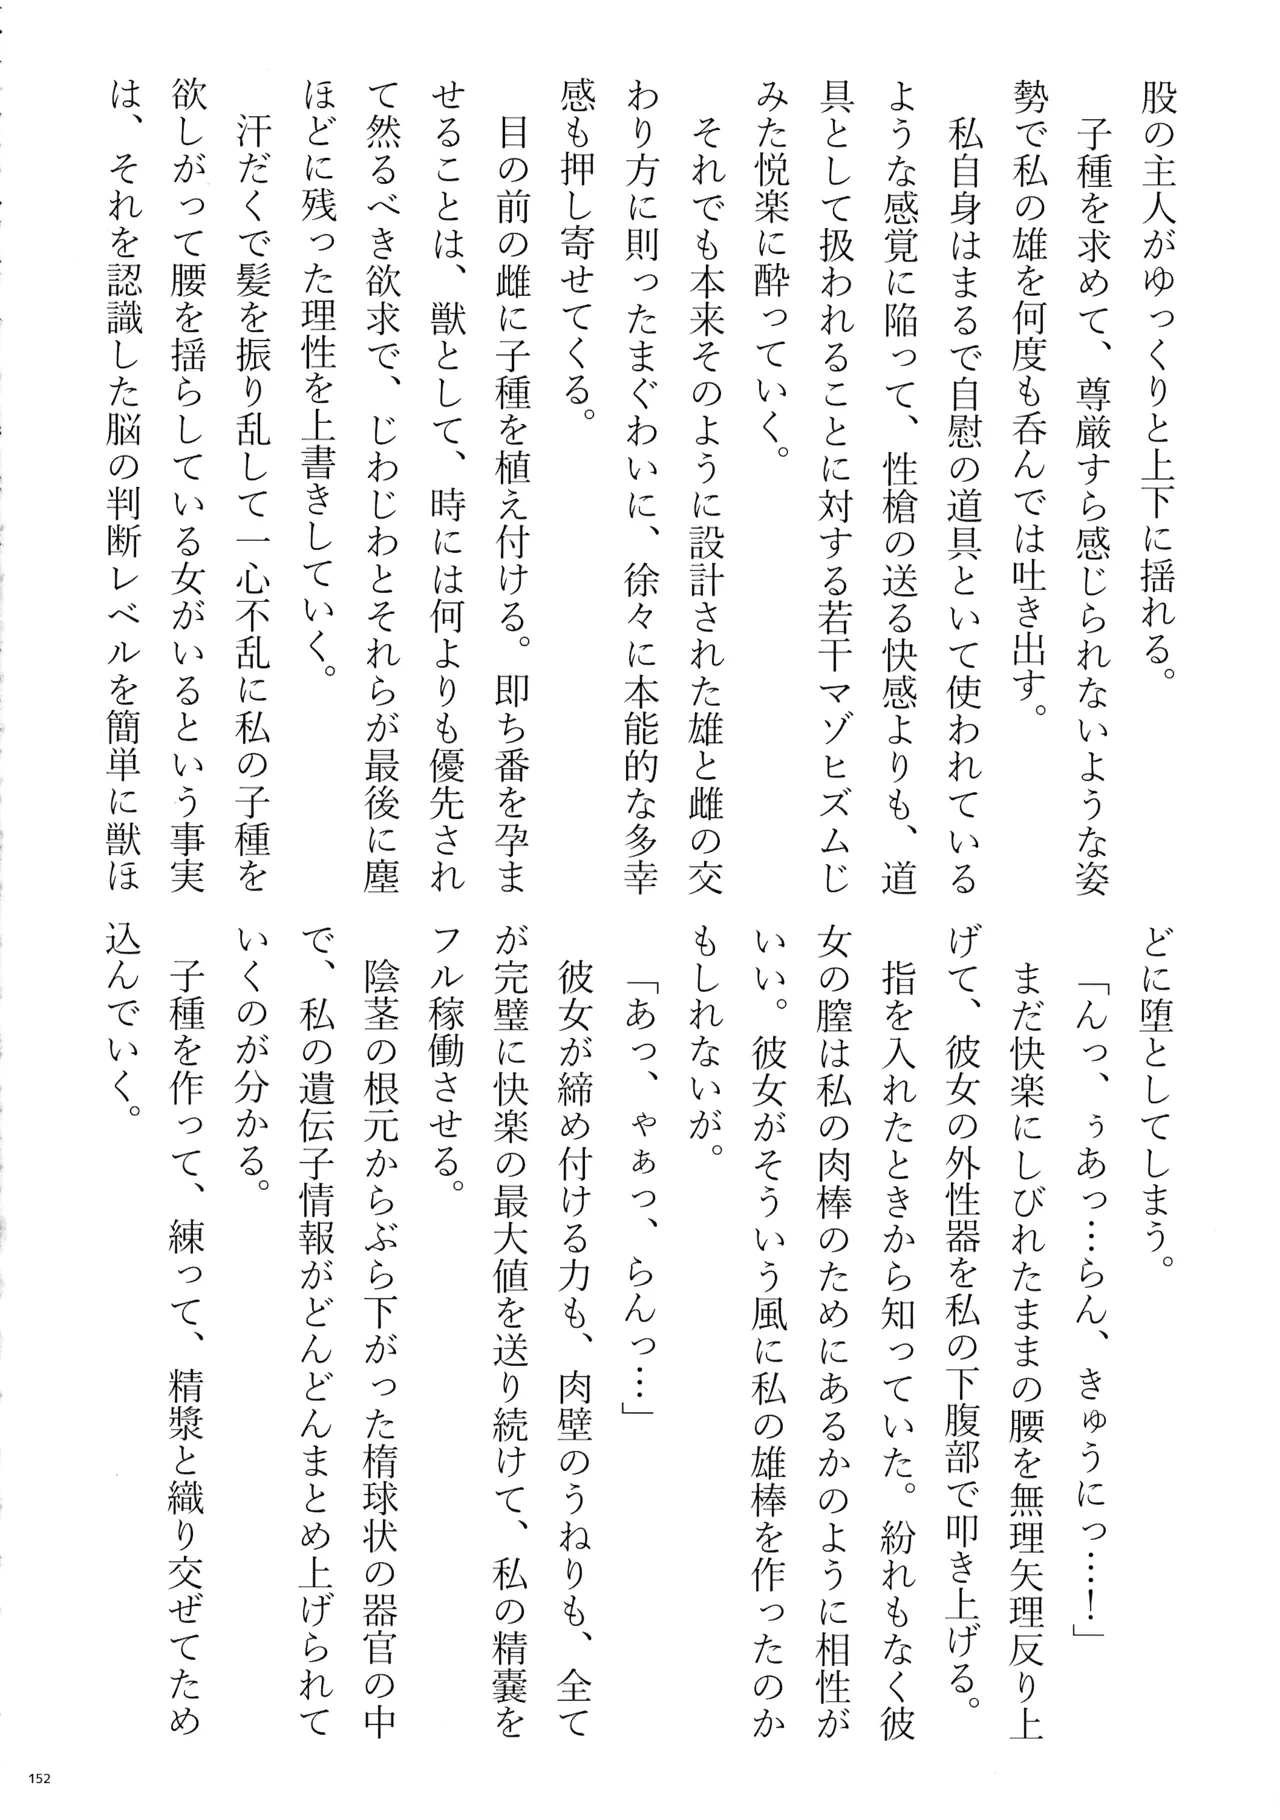 股の主人がゆっくりと上下に揺れる。
子種を求めて、尊厳すら感じられないような姿
勢で私の雄を何度も呑んでは吐き出す。
私自身はまるで自慰の道具といて使われている
ような感覚に陥って、性槍の送る快感よりも、道
具として扱われることに対する若干マゾヒズムじ
みた悦楽に酔っていく。
それでも本来そのように設計された雄と雌の交
わり方に則ったまぐわいに、徐々に本能的な多幸
感も押し寄せてくる。
目の前の雌に子種を植え付ける。即ち番を孕ま
せることは、獣として、時には何よりも優先され
て然るべき欲求で、じわじわとそれらが最後に塵
ほどに残った理性を上書きしていく。
汗だくで髪を振り乱して一心不乱に私の子種を
欲しがって腰を揺らしている女がいるという事実
は、それを認識した脳の判断レベルを簡単に獣ほ
どに堕としてしまう。
「んっ、ぅあっ…らん、きゅうにっ…！」
まだ快楽にしびれたままの腰を無理矢理反り上
げて、彼女の外性器を私の下腹部で叩き上げる。
指を入れたときから知っていた。紛れもなく彼
女の膣は私の肉棒のためにあるかのように相性が
いい。彼女がそういう風に私の雄棒を作ったのか
もしれないが。
「あっ、ゃぁっ、らんっ…」
彼女が締め付ける力も、肉壁のうねりも、全て
が完璧に快楽の最大値を送り続けて、私の精嚢を
フル稼働させる。
陰茎の根元からぶら下がった楕球状の器官の中
で、私の遺伝子情報がどんどんまとめ上げられて
いくのが分かる。
子種を作って、練って、精漿と織り交ぜてため
込んでいく。
152